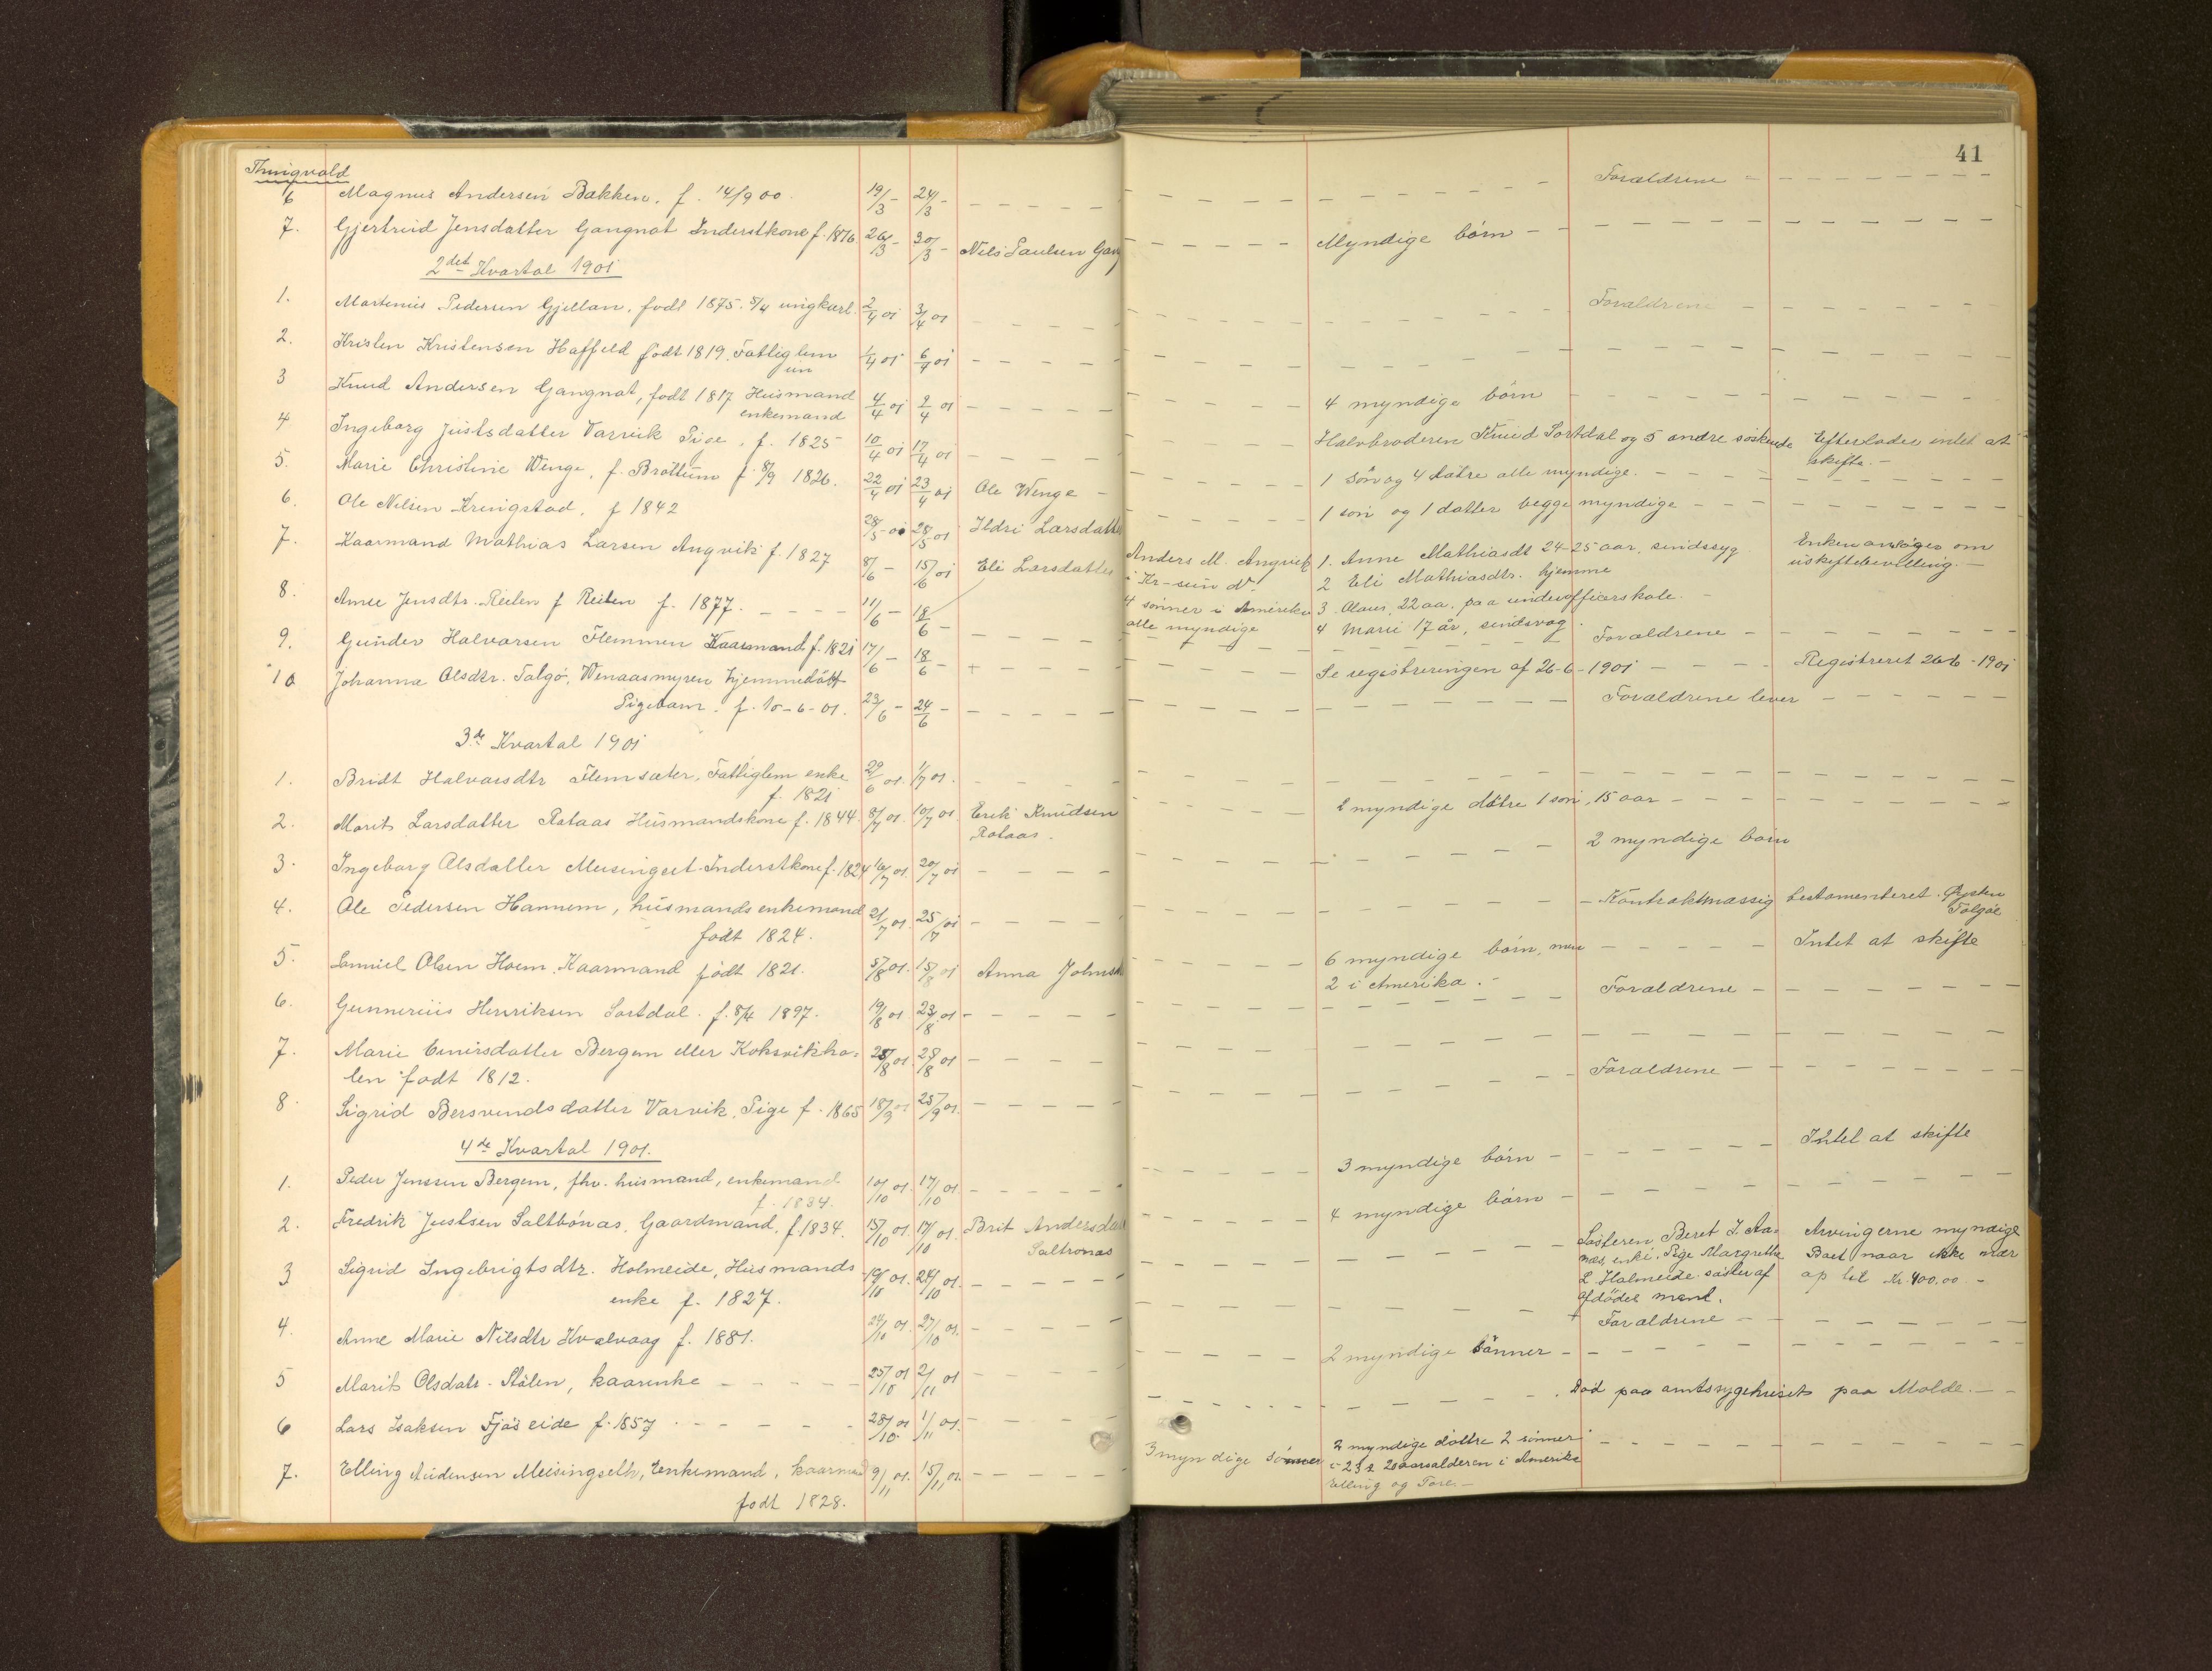 41
Thingvold
6 Magnus Andersen Bakken. f. 14/9 00. 19/3 - 24/3 - Forældrene
7. Gjertrud Jensdatter Gangnat Inderstkone f. 1876. 26/3 - 30/3 - Nils Paulsen Gang Myndige börn
2det Kvartal 1901
1. Martinus Pedersen Gjellan, födt 1875. 5/4 ungkarl. 2/4 01 3/4 01 Forældrene
2. Kristen Kristensen Haffeld födt 1819. Fattiglem 1/4 01 6/4 01
3 Knud Andersen Gangnat, födt 1817 Husmand 4/4 01 9/4 01 4 myndige börn
enkemand
4 Ingeborg Justsdatter Varvik Pige, f. 1825 10/4 01 17/4 01 Halvbroderen Knud Sortdal og 5 andre söskende Efterlader intet at
skifte. -
5. Marie Christine Wenge, f. Brottum f. 8/9 1826. 22/4 01 23/4 01 Ole Wenge - 1 sön og 4 døtre alle myndige.
6. Ole Nilsen Kringstad, f 1842 28/5 - 01 28/5 01 Ildri Larsdatter 1 sön og 1 datter begge myndige
7. Kaarmand Mathias Larsen Angvik f. 1827 8/6 - 15/6 01 Eli Larsdatter Anders M. Angvik 1. Anne Mathiasdt 24-25 aar. sindssyg. Enken ansöges om
i Kr-sun d. 2 Eli Mathiasdtr. hjemme uskiftebevilling. -
4 sönner i Amerika 3. Olaus, 22 aa. paa underofficerskole. -
alle myndige 4 Marie 17 år, sindsvag.
8. Anne Jensdtr. Reiten f Reiten f. 1877. 11/6 - 18/6 - Forældrene
9. Gunder Halvarsen Flemmen Kaarmand f. 1821 17/6 - 18/6 - Se registreringen af 26-6-1901 Registreret 26/6 - 1901
10 Johanna Olsdtr. Talgö, Wenaasmyren hjemmedöbt
Pigebarn. f. 10-6-01. 23/6 - 24/6 - Forældrene lever
3de Kvartal 1901
1. Bridt Halvarsdtr Flemsæter, Fattiglem enke 29/6 01. 1/7 01.
f. 1821
2. Marit Larsdatter Rataas Husmandskone f. 1844. 8/7 01. 10/7 01 Erik Knudsen myndige døtre 1 sön, 15 aar
Rotaas.
3. Ingeborg Olsdatter Meisingset Inderstkone f. 1824 16/7 01. 20/7 01 2 myndige börn
4. Ole Pedersen Hannem, husmands enkemand 21/7 01. 25/7 01 Kontraktmæssig testamenteret. Øysten
födt 1824. Talgöe
5. Samuel Olsen Hoem, Kaarmand födt 1821. 5/8 01. 15/8 01 Anna Johns 6 myndige börn, Intet at skifte
2 i Amerika. -
6. Gunnerius Henriksen Sortdal. f. 8/4 1897. 19/8 01 23/8 01 Forældrene
7. Marie Bergem eller Koksvikho- 28/8 01. 28/8 01
len födt 1812.
8. Sigrid Bersvendsdatter Varvik, Pige f. 1865 18/9 01 25/9 01. Forældrene
4de Kvartal 1901.
1. Peder Jensen Bergem, fhv. husmand, enkemand 10/10 01. 17/10 01. 3 myndige börn Intet at skifte
f. 1834.
2. Fredrik Justsen Saltbönas. Gaardmand, f. 1834. 15/10 01. 17/10 01. Brit Andersdat 4 myndige börn
Saltronas
3 Sigrid Ingebrigtsdtr. Holmeide, Husmands 19/10 01. 24/10 01. Søsteren Beret I. Aa- Arvingerne myndige
enke f. 1827. næs, enke, Pige Margrethe Boet naar ikke mær
L Holmeide söster af op til Kr. 400.00 -
afdödes mand.
4. Anne Marie Nilsdtr Kvalvaag f. 1881. 24/10 01. 27/10 01. Forældrene
5 Marit Olsdatr. Stölen, kaarenke 25/10 01 2/11 01 2 myndige sönner
6 Lars Isaksen Fjøseide f. 1857 28/10 01 1/11 01. Död paa amtssygehuset paa Molde.
7. Elling Audensen Meisingseth, Enkemand, kaarmand 9/11 01. 15/11 01. 3 myndige sönner 2 myndige döttre 2 sönner
födt 1828. i 23 á 20aarsalderen i Amerika
Elling og Tore. -